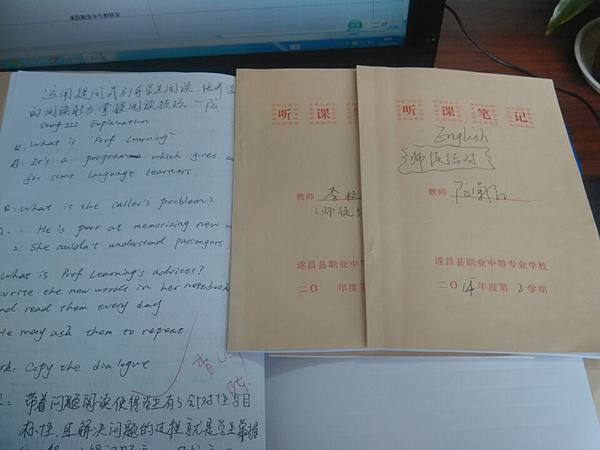 遂昌职业中专教科室
运用提问式引导学生阅读，培养学
的阅读能力掌握阅读技巧。
Step III Explanation
Q. What is "Prof Learning"
A. It's a program which gives a
for some language learners
Q: What is the caller's problem?
A. He is poor at memorizing new w
2. She couldn't understand passangers.
What is Prof Learning's advices?
write the new words in her notebook
and read them every day
He may ask them to repeat
Copy the dialogue
带着问题阅读使得学生有针对性与目
标性，且解决问题的过程就是学生掌握
听 课
教师 李
(师徒
遂昌县职业中等
二〇 年度第
听 课 笔 记
English
师徒结对
教师
遂昌县职业中等专业学校
二〇14年度第2学期